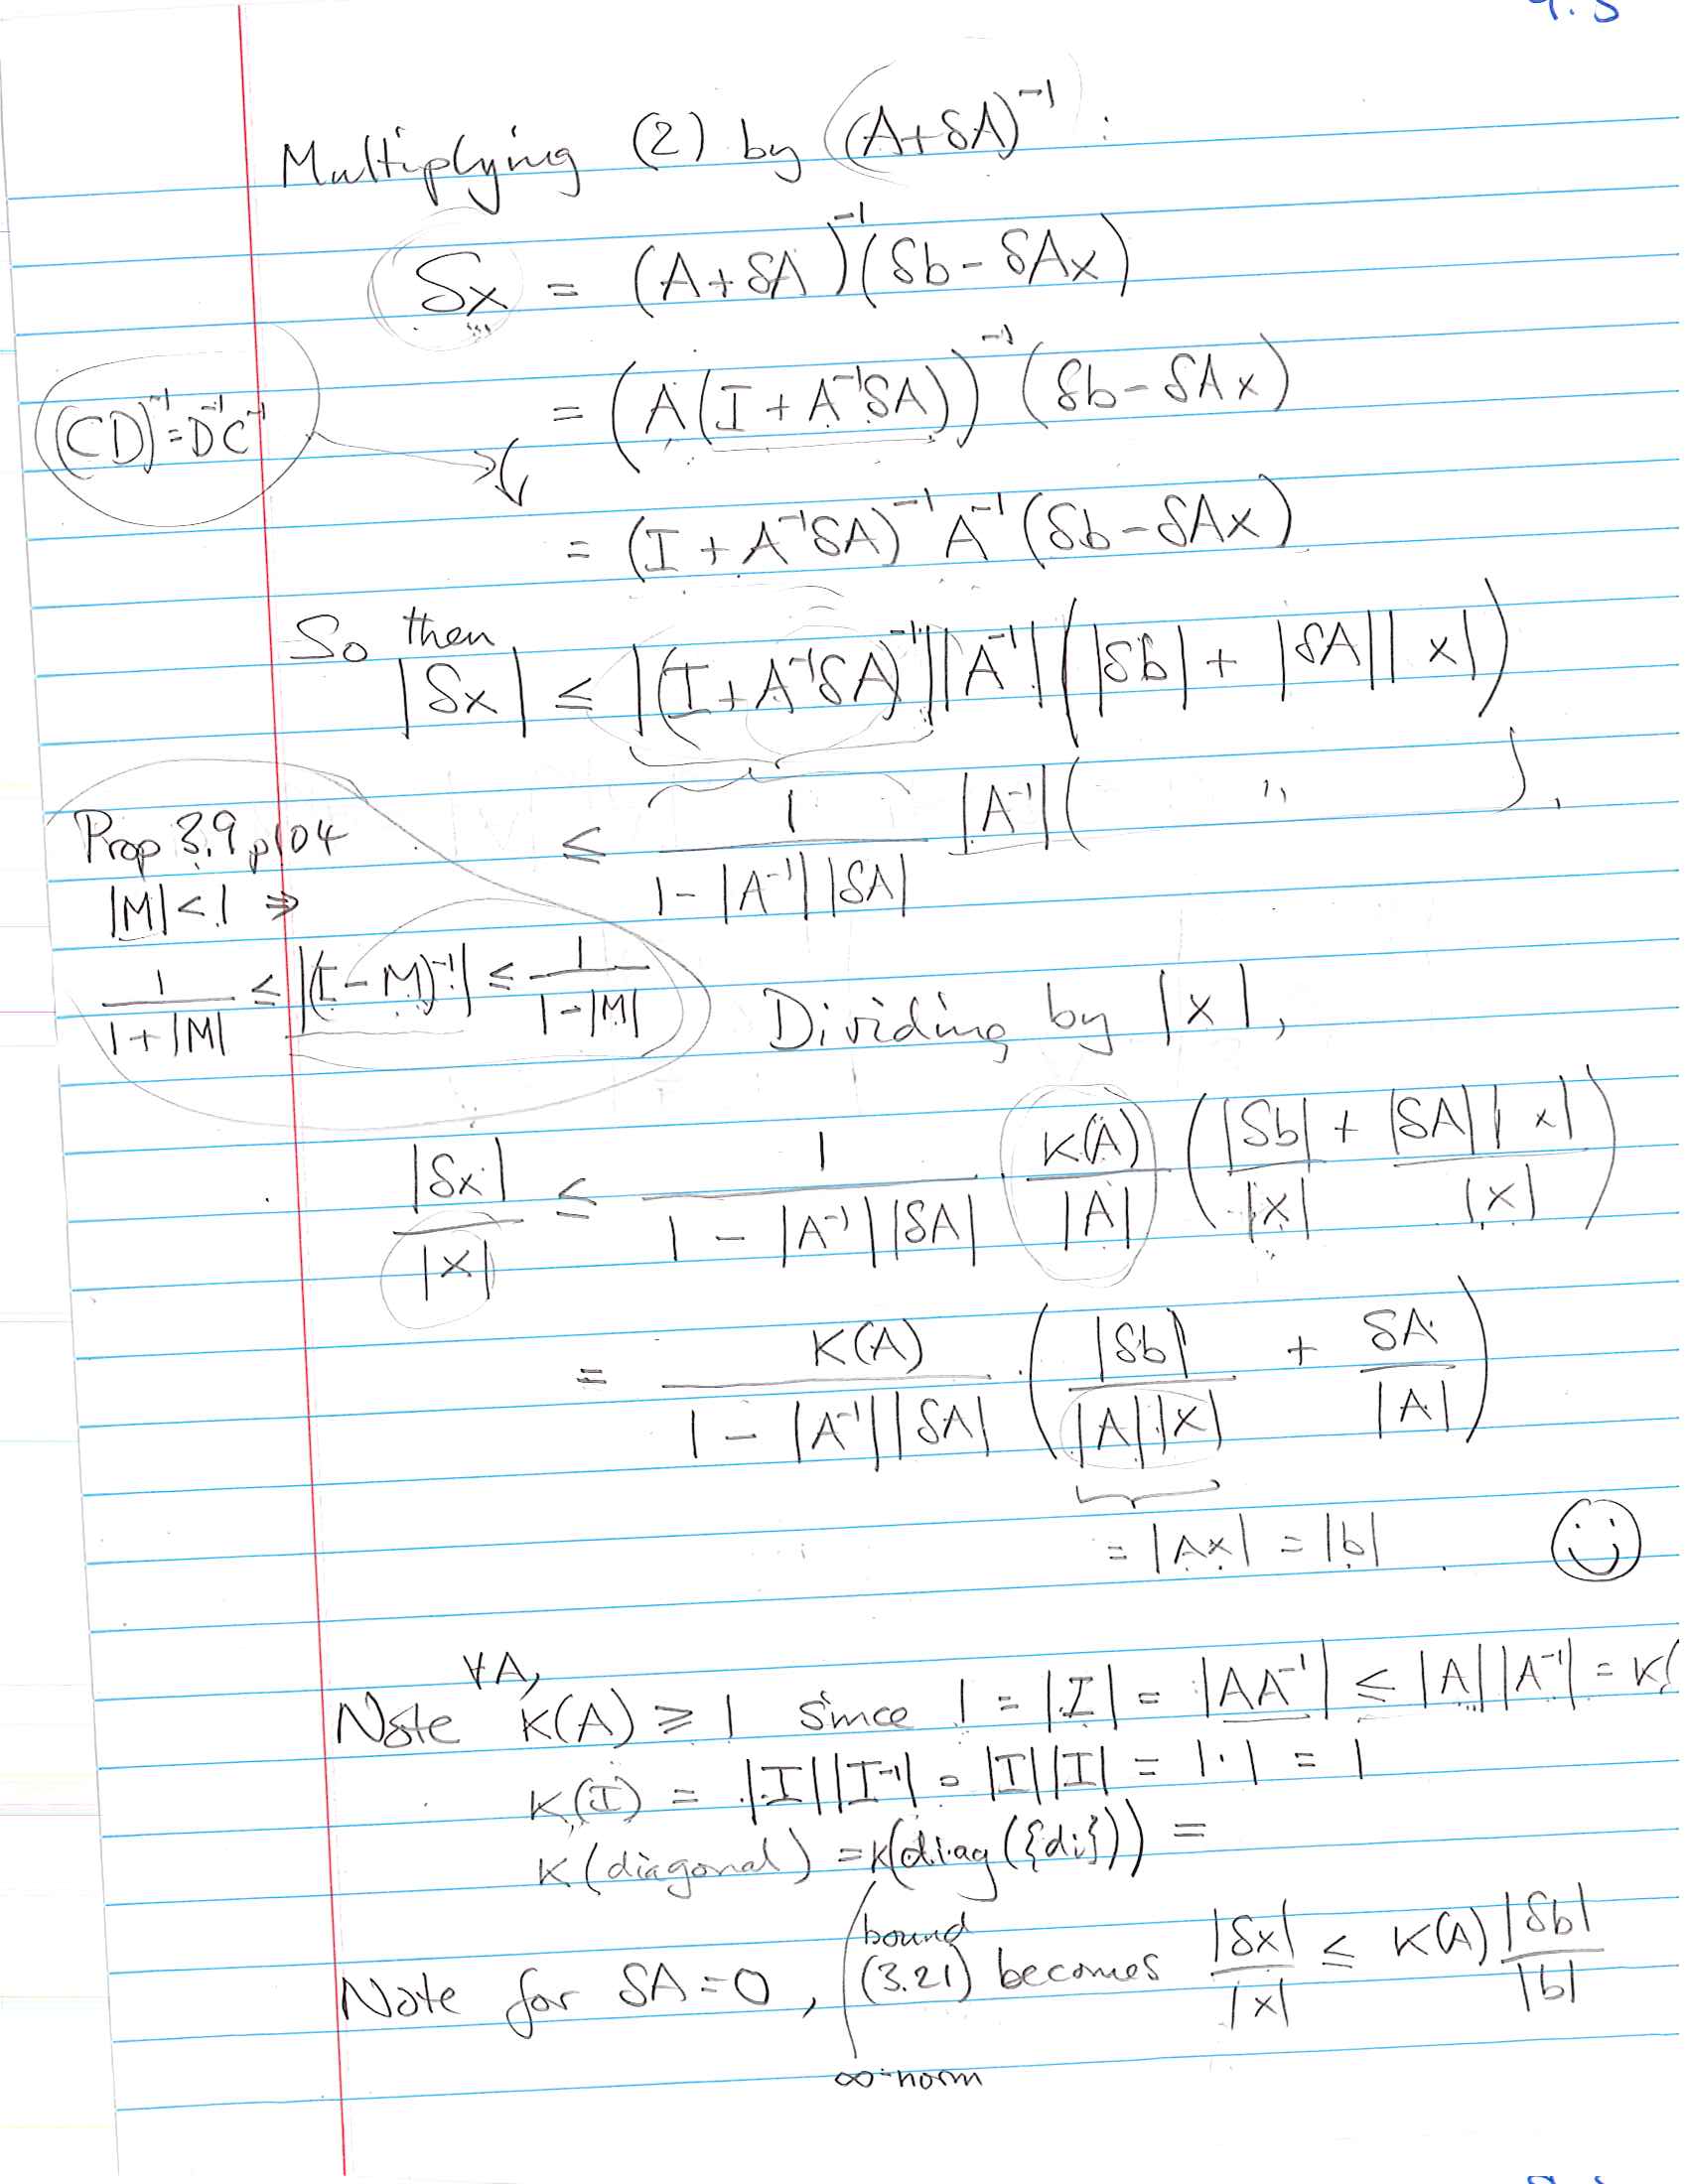 9.5
Multiplying (2) by (A+δA)⁻¹ :
δx = (A+δA)⁻¹(δb - δAx)
= (A(I + A⁻¹δA))⁻¹ (δb - δAx)
(CD)⁻¹ = D⁻¹C⁻¹
= (I + A⁻¹δA)⁻¹ A⁻¹ (δb - δAx)
So then
|δx| ≤ |(I + A⁻¹δA)⁻¹||A⁻¹| (|δb| + |δA||x|)
≤ 1/(1 - |A⁻¹||δA|) |A⁻¹| ( " ) .
Prop 3.9 p104
|M| < 1 ⇒
1/(1+|M|) ≤ |(I - M)⁻¹| ≤ 1/(1-|M|)
Dividing by |x|,
|δx|/|x| ≤ 1/(1 - |A⁻¹||δA|) K(A)/|A| (|δb|/|x| + |δA||x|/|x|)
= K(A)/(1 - |A⁻¹||δA|) · (|δb|/(|A||x|) + δA/|A|)
= |Ax| = |b| .
∀A,
Note K(A) ≥ 1 since 1 = |I| = |AA⁻¹| ≤ |A||A⁻¹| = K(
K(I) = |I||I⁻¹| = |I||I| = 1·1 = 1
K(diagonal) = K(diag({di})) =
Note for δA = 0, bound (3.21) becomes |δx|/|x| ≤ K(A) |δb|/|b|
∞-norm